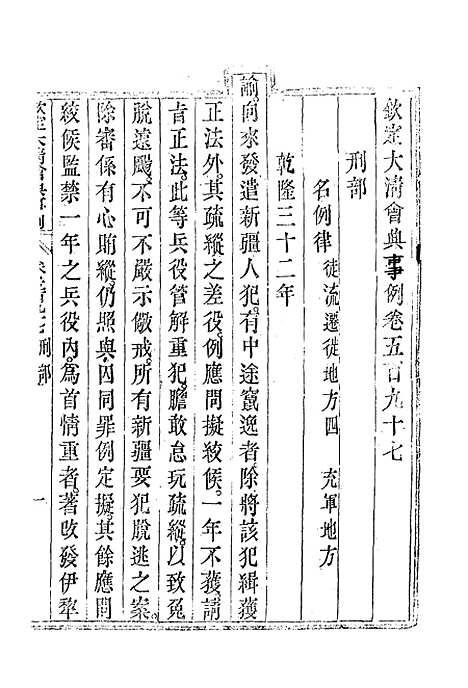 欽定大清會典事例卷五百九十七
刑部
名例律 徒流遷徙地方四 充軍地方
乾隆三十二年
諭向來發遣新疆人犯有中途竄逸者除將該犯緝獲
正法外其疏縱之差役例應問擬絞候一年不獲請
旨正法此等兵役管解重犯膽敢怠玩疏縱以致兔
脫遠颺不可不嚴示儆戒所有新疆要犯脫逃之案
除審係有心賄縱仍照與囚同罪例定擬其餘應問
絞候監禁一年之兵役內為首情重者著改發伊犂
欽定大清會典事例 卷五百九十七 刑部 一